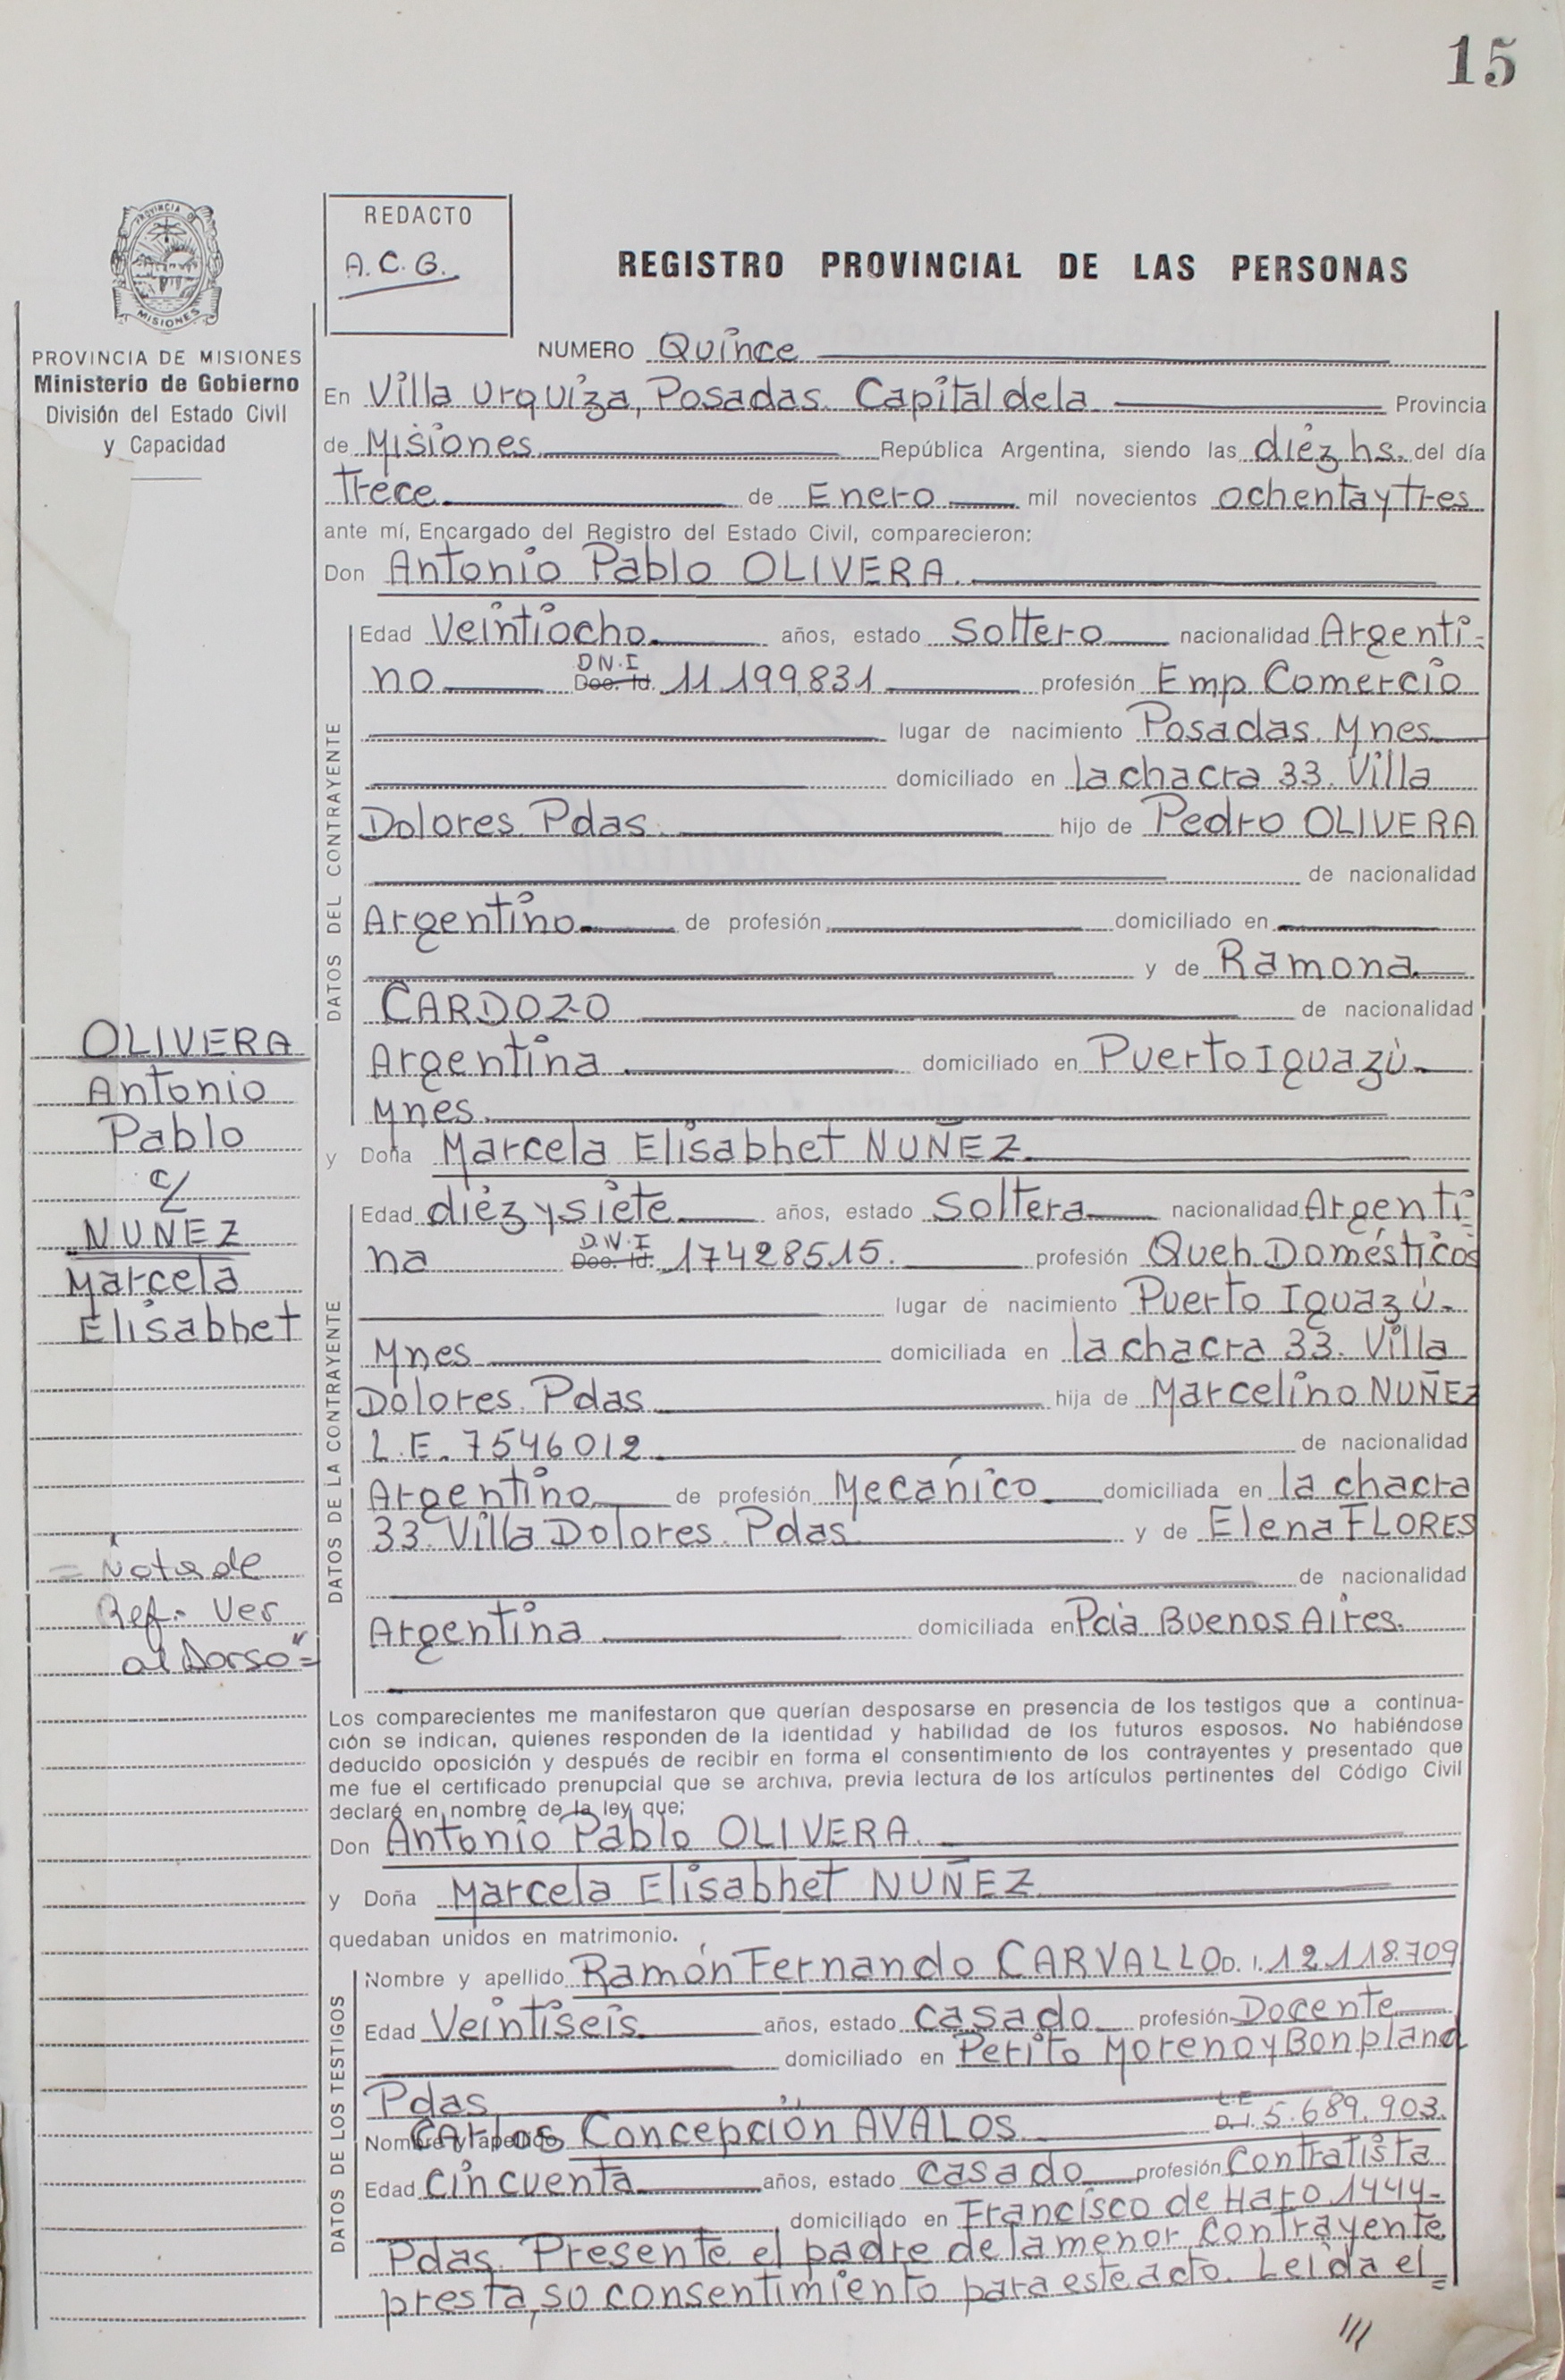 15
PROVINCIA DE
MISIONES
PROVINCIA DE MISIONES
Ministerio de Gobierno
División del Estado Civil
y Capacidad
REDACTO
A.C.G.
REGISTRO PROVINCIAL DE LAS PERSONAS
NUMERO Quince
En Villa Urquiza, Posadas. Capital de la Provincia
de Misiones República Argentina, siendo las diéz hs. del día
Trece de Enero mil novecientos ochenta y tres
ante mí, Encargado del Registro del Estado Civil, comparecieron:
Don Antonio Pablo OLIVERA.
DATOS DEL CONTRAYENTE
Edad Veintiocho. años, estado Soltero nacionalidad Argenti-
no D.N.I Doc. Id. 11.199.831 profesión Emp. Comercio
lugar de nacimiento Posadas. Mnes.
domiciliado en la chacra 33. Villa
Dolores. Pdas. hijo de Pedro OLIVERA
de nacionalidad
Argentino. de profesión domiciliado en
y de Ramona
CARDOZO de nacionalidad
Argentina. domiciliado en Puerto Iguazú-
Mnes.
y Doña Marcela Elisabhet NUÑEZ.
DATOS DE LA CONTRAYENTE
Edad diéz y siete años, estado Soltera nacionalidad Argenti=
na D.N.I Doc. Id. 17428515. profesión Queh. Domésticos
lugar de nacimiento Puerto Iguazú-
Mnes domiciliada en la chacra 33. Villa
Dolores. Pdas. hija de Marcelino NUÑEZ
L.E. 7546012. de nacionalidad
Argentino de profesión Mecánico. domiciliada en la chacra
33. Villa Dolores. Pdas. y de Elena FLORES
de nacionalidad
Argentina domiciliada en Pcia. Buenos Aires.
OLIVERA
Antonio
Pablo
c/
NUNEZ
Marcela
Elisabhet
= Nota de
Ref.- Ver
al Dorso"=
Los comparecientes me manifestaron que querían desposarse en presencia de los testigos que a continua-
ción se indican, quienes responden de la identidad y habilidad de los futuros esposos. No habiéndose
deducido oposición y después de recibir en forma el consentimiento de los contrayentes y presentado que
me fue el certificado prenupcial que se archiva, previa lectura de los artículos pertinentes del Código Civil
declaré en nombre de la ley que;
Don Antonio Pablo OLIVERA.
y Doña Marcela Elisabhet NUÑEZ.
quedaban unidos en matrimonio.
DATOS DE LOS TESTIGOS
Nombre y apellido Ramón Fernando CARVALLO D.I. 12.118.709
Edad Veintiseis. años, estado casado profesión Docente
domiciliado en Perito Moreno y Bonpland
Pdas.
Nombre y apellido Carlos Concepción AVALOS. L.E D.I. 5.689.903.
Edad Cincuenta. años, estado casado profesión Contratista
domiciliado en Francisco de Haro 1444-
Pdas. Presente el padre de la menor contrayente
presta, so consentimiento para este acto. Leída el=
///